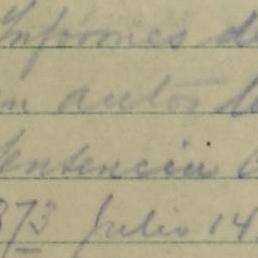 Informes de
en autos
Sentencia
873 Julio 14